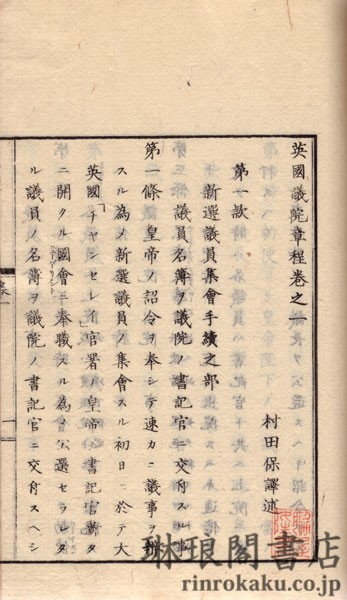 英國議院章程卷之一
村田保譯述
第一款
新選議員集會手續之部
議員名簿ヲ議院ノ書記官ニ交付スル事
第一條 皇帝ノ詔令ヲ奉シテ速カニ議事ヲ辨
スル為メ新選議員ノ集會スル初日ニ於テ大
英國「チャンセレイ」官署ノ皇帝ノ書記官ヨリ
ニ開クル國會ニ奉職スル為メ公選セラレタ
ル議員ノ名簿ヲ議院ノ書記官ニ交付スヘシ
琳琅閣書店
rinrokaku.co.jp